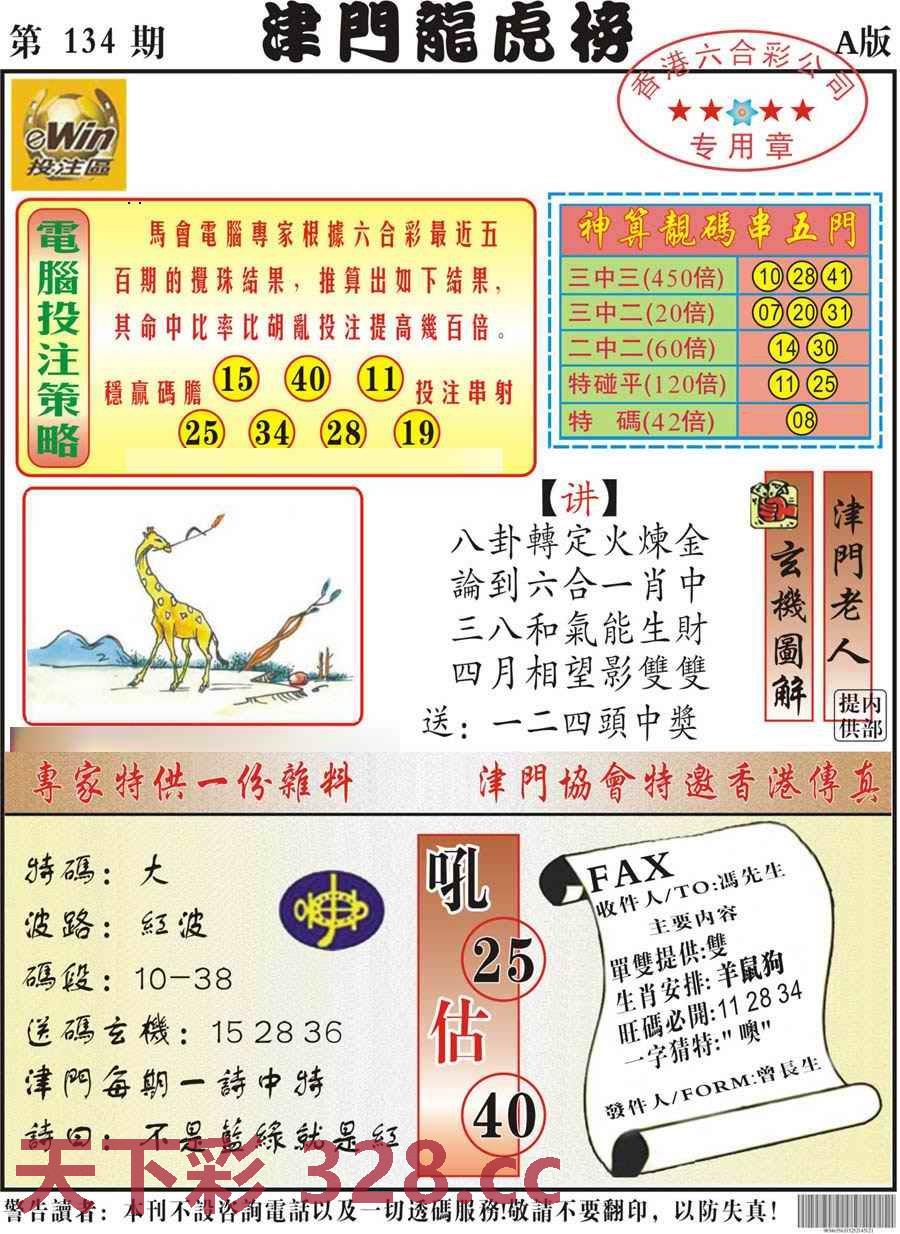 第 134 期
津門龍虎榜
A版
香港六合彩公司
专用章
eWin
投注區
電腦投注策略
馬會電腦專家根據六合彩最近五
百期的攪珠結果，推算出如下結果，
其命中比率比胡亂投注提高幾百倍。
穩贏碼膽 15 40 11 投注串射
25 34 28 19
神算靚碼串五門
三中三(450倍) 10 28 41
三中二(20倍) 07 20 31
二中二(60倍) 14 30
特碰平(120倍) 11 25
特 碼(42倍) 08
【讲】
八卦轉定火煉金
論到六合一肖中
三八和氣能生財
四月相望影雙雙
送：一二四頭中獎
玄機圖解
津門老人
内部提供
2
專家特供一份雜料
津門協會特邀香港傳真
特碼：大
波路：紅波
碼段：10-38
送碼玄機：15 28 36
津門每期一詩中特
詩曰：不是藍綠就是紅
吼
25
估
40
FAX
收件人/TO:馮先生
主要内容
單雙提供:雙
生肖安排:羊鼠狗
旺碼必開:11 28 34
一字猜特:"噢"
發件人/FORM:曾長生
天下彩 328.cc
警告讀者：本刊不設咨詢電話以及一切透碼服務!敬請不要翻印，以防失真！